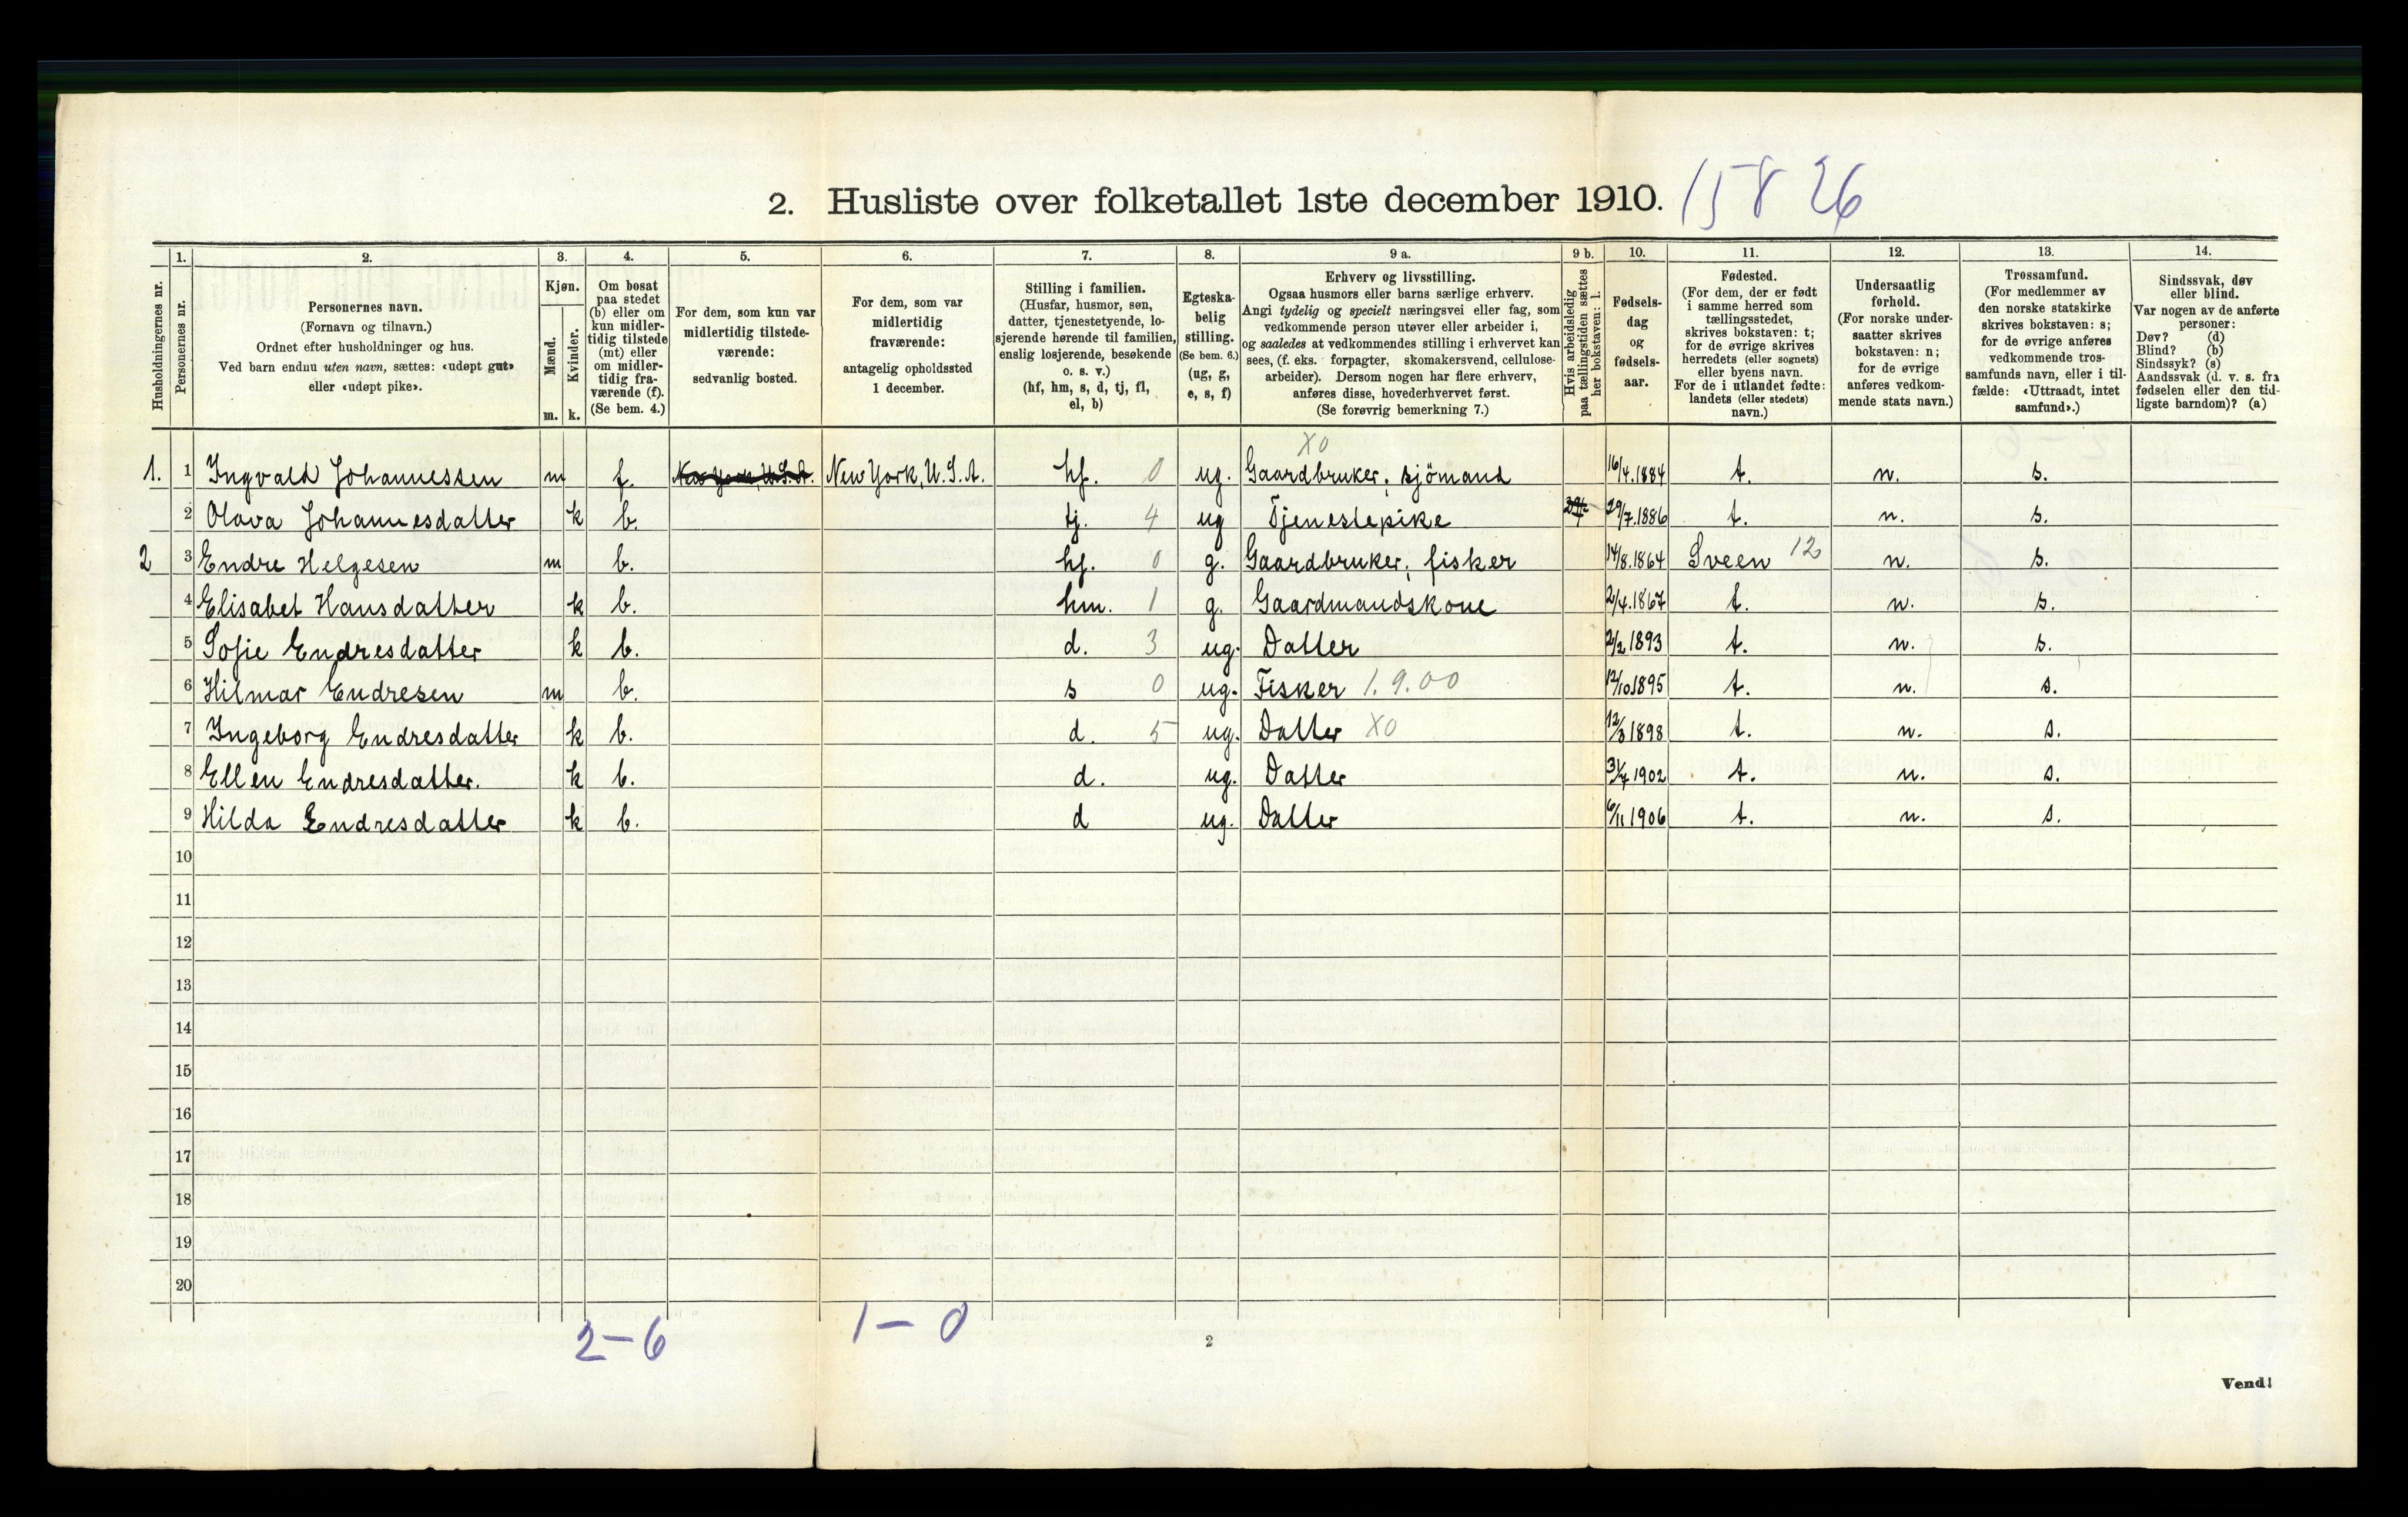 2. Husliste over folketallet 1ste december 1910. 158 26
Husholdningernes nr.
1. Personernes nr.
2. Personernes navn. (Fornavn og tilnavn.) Ordnet efter husholdninger og hus. Ved barn endnu uten navn, sættes: «udøpt gut» eller «udøpt pike».
3. Kjøn. Mænd. m. Kvinder. k.
4. Om bosat paa stedet (b) eller om kun midlertidig tilstede (mt) eller om midlertidig fraværende (f). (Se bem. 4.)
5. For dem, som kun var midlertidig tilstedeværende: sedvanlig bosted.
6. For dem, som var midlertidig fraværende: antagelig opholdssted 1 december.
7. Stilling i familien. (Husfar, husmor, søn, datter, tjenestetyende, losjerende hørende til familien, enslig losjerende, besøkende o. s. v.) (hf, hm, s, d, tj, fl, el, b)
8. Egteskabelig stilling. (Se bem. 6.) (ug, g, e, s, f)
9 a. Erhverv og livsstilling. Ogsaa husmors eller barns særlige erhverv. Angi tydelig og specielt næringsvei eller fag, som vedkommende person utøver eller arbeider i, og saaledes at vedkommendes stilling i erhvervet kan sees, (f. eks. forpagter, skomakersvend, cellulosearbeider). Dersom nogen har flere erhverv, anføres disse, hovederhvervet først. (Se forøvrig bemerkning 7.)
9 b. Hvis arbeidsledig paa tællingstiden sættes her bokstaven: l.
10. Fødselsdag og fødselsaar.
11. Fødested. (For dem, der er født i samme herred som tællingsstedet, skrives bokstaven: t; for de øvrige skrives herredets (eller sognets) eller byens navn. For de i utlandet fødte: landets (eller stedets) navn.)
12. Undersaatlig forhold. (For norske undersaatter skrives bokstaven: n; for de øvrige anføres vedkommende stats navn.)
13. Trossamfund. (For medlemmer av den norske statskirke skrives bokstaven: s; for de øvrige anføres vedkommende trossamfunds navn, eller i tilfælde: «Uttraadt, intet samfund».)
14. Sindssvak, døv eller blind. Var nogen av de anførte personer: Døv? (d) Blind? (b) Sindssyk? (s) Aandssvak (d. v. s. fra fødselen eller den tidligste barndom)? (a)
X0
1. 1 Ingvald Johannessen m f. New York, U.S.A. New York, U.S.A. hf. 0 ug. Gaardbruker, sjömand 16/4.1884 t. n. s.
2 Olava Johannesdatter k b. tj. 4 ug Tjenestepike 29/7.1886 t. n. s.
2 3 Endre Helgesen m b. hf. 0 g. Gaardbruker, fisker 14/8.1864 Sveen 12 n. s.
4 Elisabet Hansdatter k b. hm. 1 g. Gaardmandskone 2/4.1867 t. n. s.
5 Sofie Endresdatter k b. d. 3 ug. Datter 2/2 1893 t. n. s.
6 Hilmar Endresen m b. s 0 ug. Fisker 1.9.00 12/10.1895 t. n. s.
7 Ingeborg Endresdatter k b. d. 5 ug. Datter X0 12/3 1898 t. n. s.
8 Ellen Endresdatter. k b. d. ug. Datter 31/7 1902 t. n. s.
9 Hilda Endresdatter k b. d ug. Datter 6/11 1906 t. n. s.
10
11
12
13
14
15
16
17
18
19
20
2-6 1-0
2
Vend!